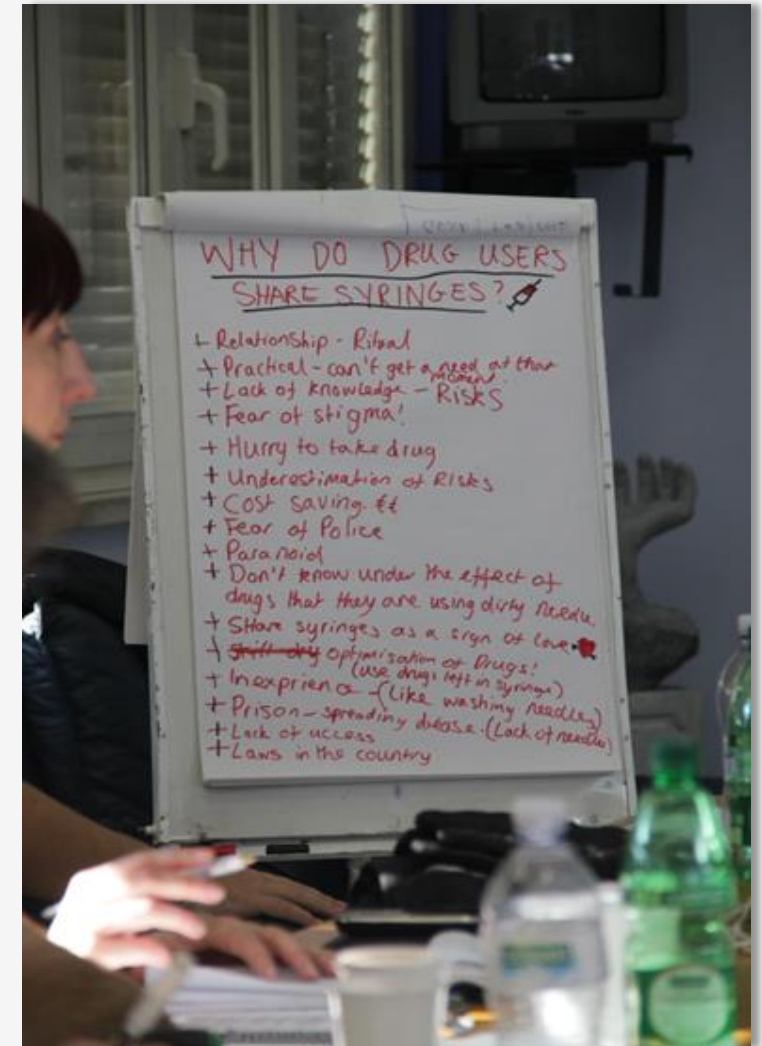 WHY DO DRUG USERS
SHARE SYRINGES?
+ Relationship - Ritual
+ Practical - can't get a need at that
moment.
+ Lack of knowledge - Risks
+ Fear of stigma!
+ Hurry to take drug
+ Underestimation of Risks
+ Cost saving. €€
+ Fear of Police
+ Paranoid
+ Don't know under the effect of
drugs that they are using dirty needle.
+ Share syringes as a sign of love
+ optimisation of Drugs!
(use drugs left in syringe)
+ Inexprience - (Like washing needles)
+ Prison - spreading disease. (Lack of needles)
+ Lack of access
+ Laws in the country